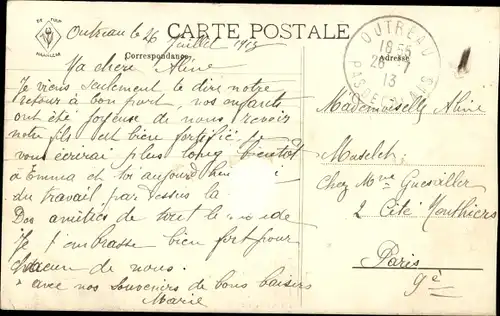 CARTE POSTALE
Outreau le 26 Juillet 1913
Correspondance
Adresse
OUTREAU
18 55
26 -7
13
PAS DE CALAIS
Ma chère Aline
Je viens seulement te dire notre
retour à bon port, nos enfants
ont été joyeuse de nous revoir
notre fils est bien fortifié, je
vous écrirai plus long bientôt
à Emma et toi aujourd'hui
du travail par dessus la
Des amitiés de tout le monde
Je t'embrasse bien fort pour
chacun de nous.
avec nos souvenirs de bons baisers
Marie
Mademoiselle Aline
Maselet
Chez Mme Guesvillier
2 Cité Monthiers
Paris
9e